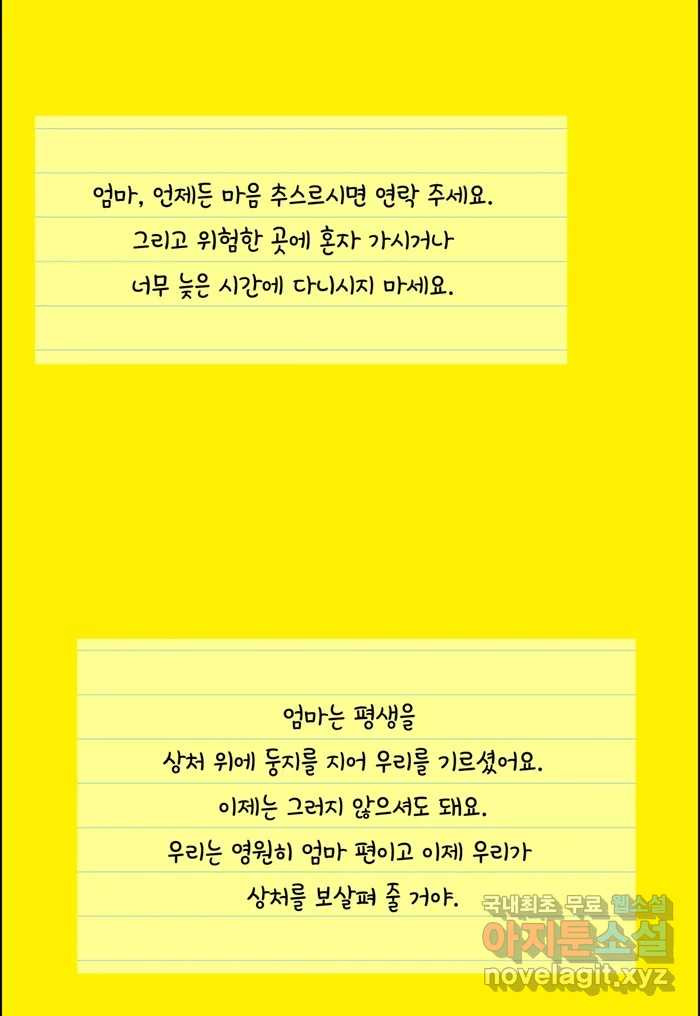 엄마, 언제든 마음 추스르시면 연락 주세요.
그리고 위험한 곳에 혼자 가시거나
너무 늦은 시간에 다니시지 마세요.
엄마는 평생을
상처 위에 둥지를 지어 우리를 기르셨어요.
이제는 그러지 않으셔도 돼요.
우리는 영원히 엄마 편이고 이제 우리가
상처를 보살펴 줄 거야.
국내최초 무료 웹소설
아지툰소설
novelagit.xyz